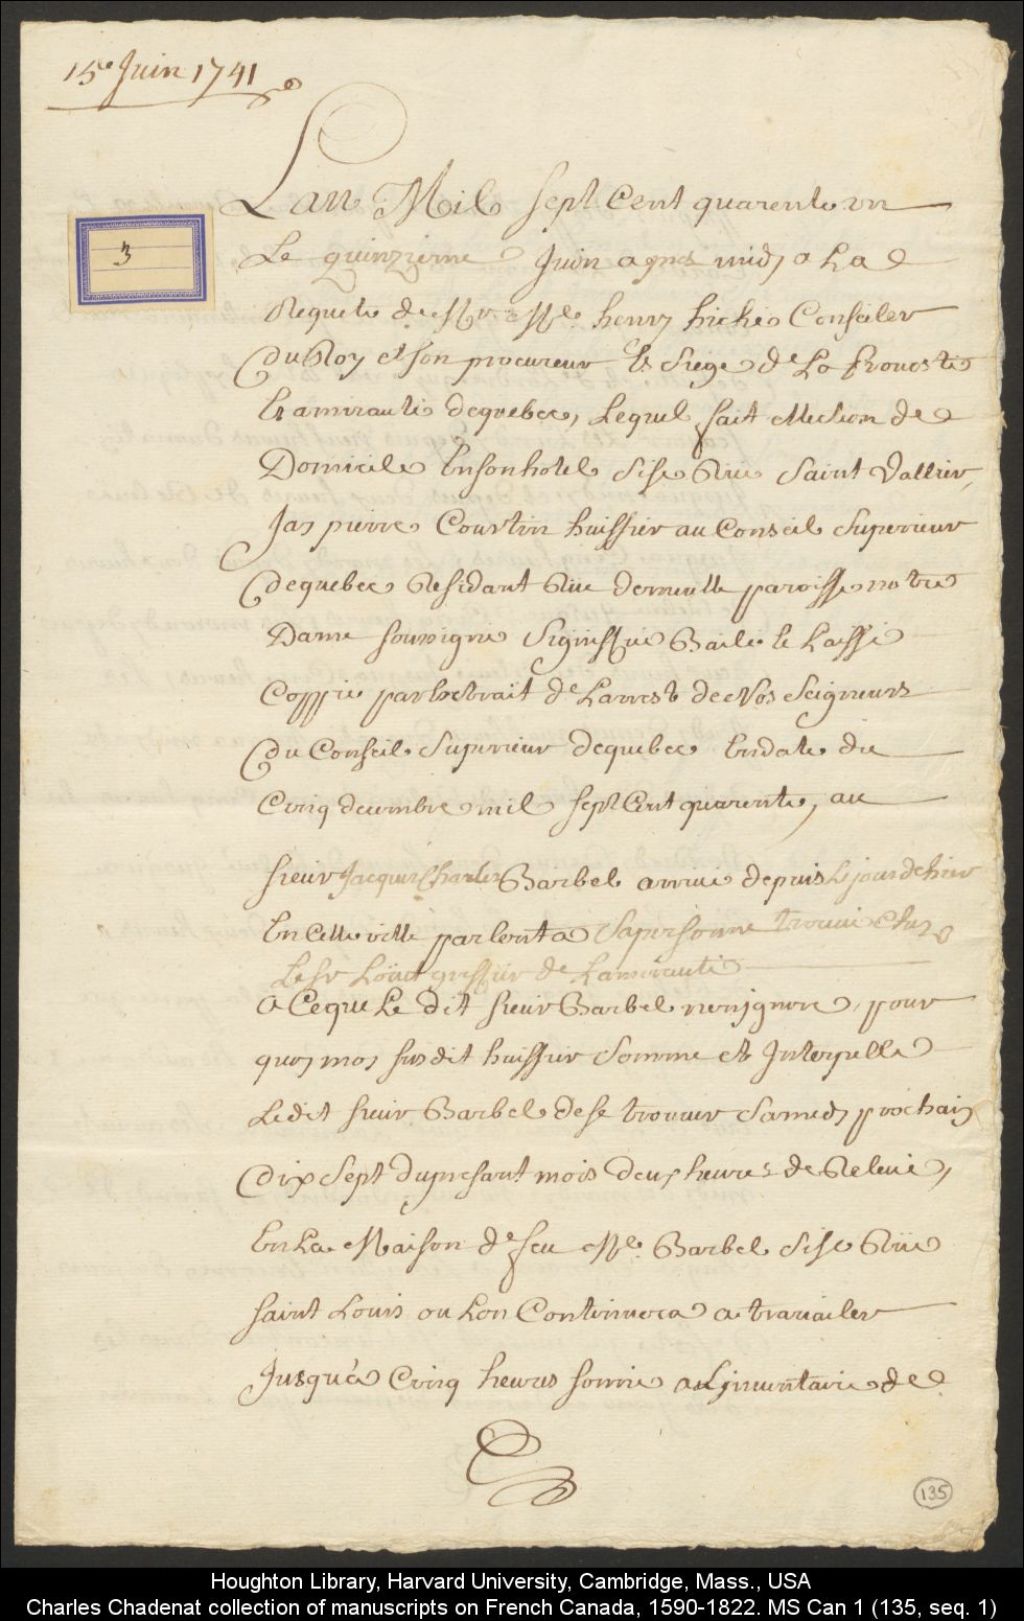 15e Juin 1741
3
Lan Mil Sept Cent quarente un
Le quinzieme Juin apres midy a La
Requete de Mr Me henry hiche Conseiler
Du Roy et son procureur Es Siege de La prevosté
Et amirauté dequebec, Lequel fait Election de
Domicile Ensonhotel Sise Rüe Saint Vallier,
Jay pierre Courtin huissier au Conseil Superieur
dequebec Residant Rüe demeulle paroisse notre
Dame soussigné Signiffié Bailé et Laissé
Coppie par Extrait de Larrest de Nos Seigneurs
du Conseil Superieur dequebec Endate du
Cinq decembre mil Sept Cent quarente, au
sieur Jacques Charles Barbel arrivé depuis Le jour dehier
En Cette ville parlent a Sapersonne trouvé Chez
Le Sr Loüet greffier de Lamirauté
A Ceque Le dit sieur Barbel nenignore, pour
quoy moy susdit huissier Somme et Interpelle
Ledit sieur Barbel dese trouver Samedy prochain
dix Sept dupresant mois deux heures de Relevé,
En La Maison de feu Me Barbel Sise Rüe
Saint Louis ou Lon Continuera a travailer
Jusqu'a Cinq heures sonné a Linventaire de
135
Houghton Library, Harvard University, Cambridge, Mass., USA
Charles Chadenat collection of manuscripts on French Canada, 1590-1822. MS Can 1 (135, seq. 1)